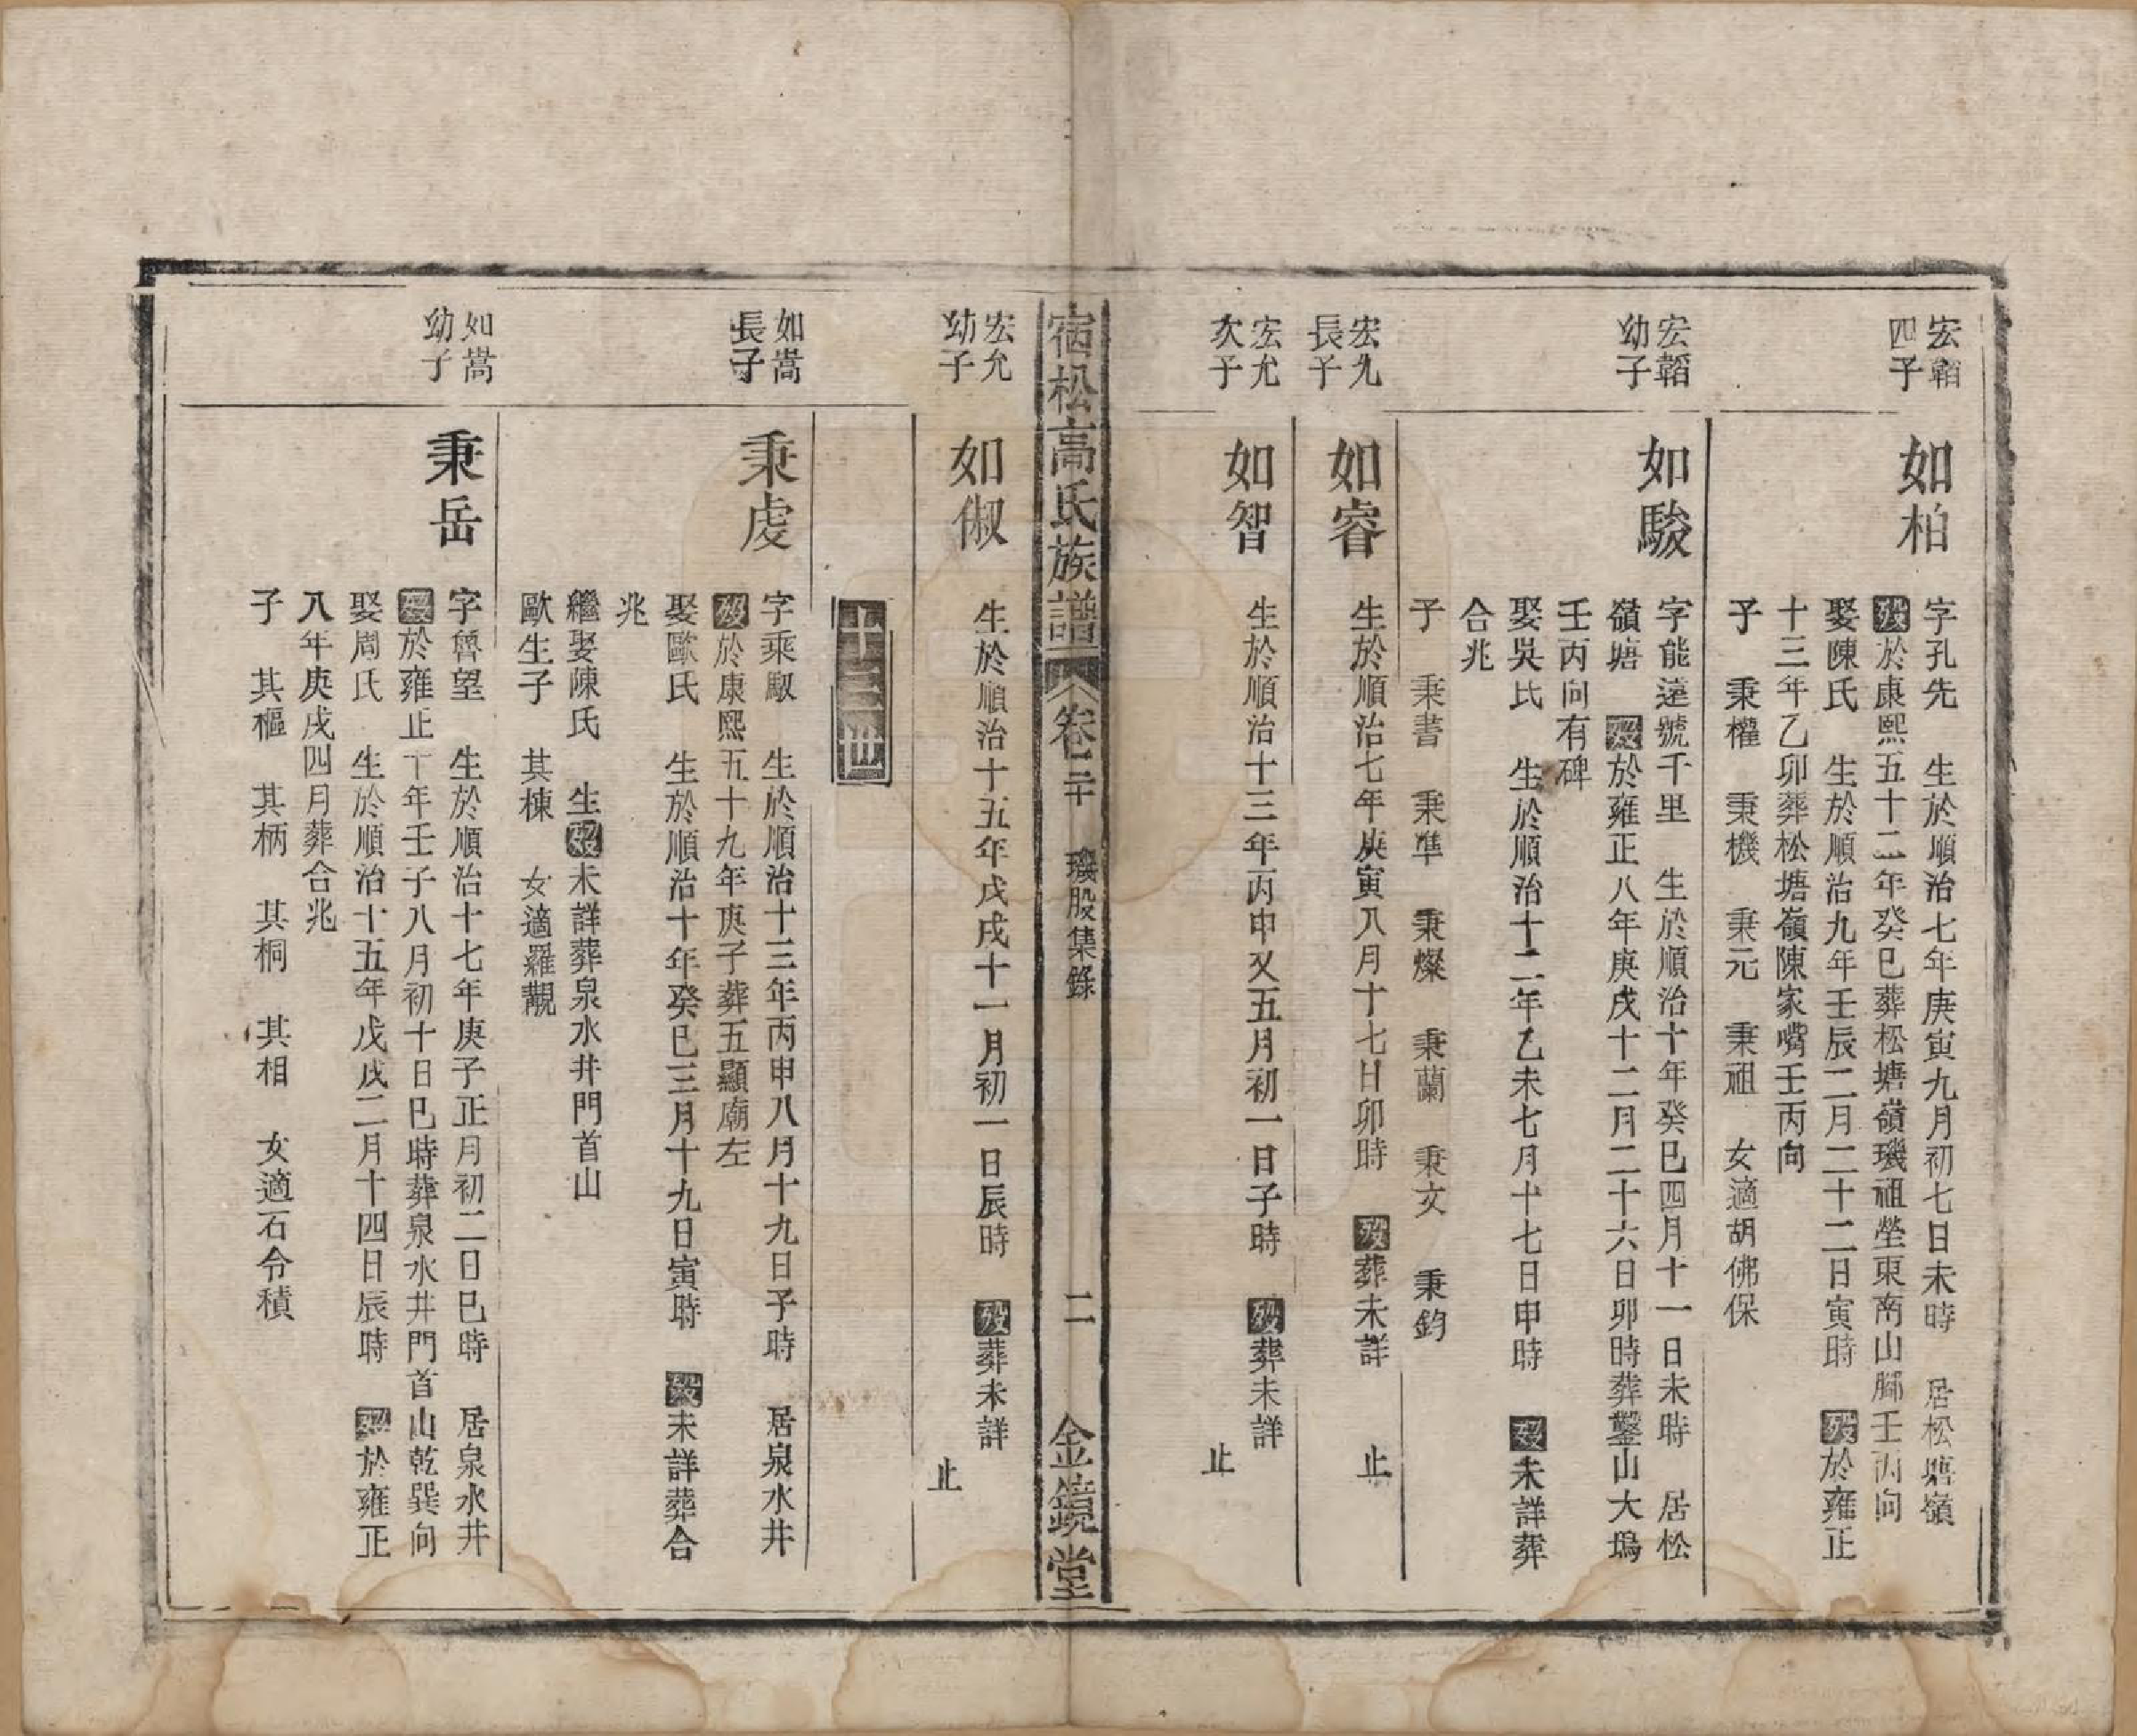 宏韜
四子
如柏
字孔先　生於順治七年庚寅九月初七日未時　居松塘嶺
歿於康熙五十二年癸巳葬松塘嶺璣祖塋東南山腳壬丙向
娶陳氏　生於順治九年壬辰二月二十二日寅時　歿於雍正
十三年乙卯葬松塘嶺陳家嘴壬丙向
子　秉權　秉機　秉元　秉祖　女適胡佛保
宏韜
幼子
如駿
字能遠號千里　生於順治十年癸巳四月十一日未時　居松
嶺塘　歿於雍正八年庚戌十二月二十六日卯時葬鑿山大塢
壬丙向有碑
娶吳氏　生於順治十二年乙未七月十七日申時　歿未詳葬
合兆
子　秉書　秉準　秉燦　秉蘭　秉文　秉鈞
宏允
長子
如睿
生於順治七年庚寅八月十七日卯時　歿葬未詳　止
宏允
次子
如智
生於順治十三年丙申又五月初一日子時　歿葬未詳
止
宿松高氏族譜　卷二十　璣股集錄　二　金鏡堂
宏允
幼子
如俶
生於順治十五年戊戌十一月初一日辰時　歿葬未詳
止
十三世
如嵩
長子
秉虔
字乘馭　生於順治十三年丙申八月十九日子時　居泉水井
歿於康熙五十九年庚子葬五顯廟左
娶歐氏　生於順治十年癸巳三月十九日寅時　歿未詳葬合
兆
繼娶陳氏　生歿未詳葬泉水井門首山
歐生子　其棟　女適羅覯
如嵩
幼子
秉岳
字魯望　生於順治十七年庚子正月初二日巳時　居泉水井
歿於雍正十年壬子八月初十日巳時葬泉水井門首山乾巽向
娶周氏　生於順治十五年戊戌二月十四日辰時　歿於雍正
八年庚戌四月葬合兆
子　其樞　其柄　其桐　其相　女適石令積